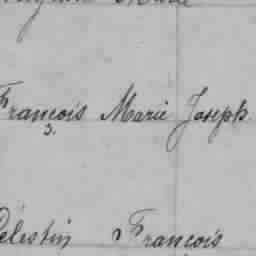 François Marie Joseph
Célestin François